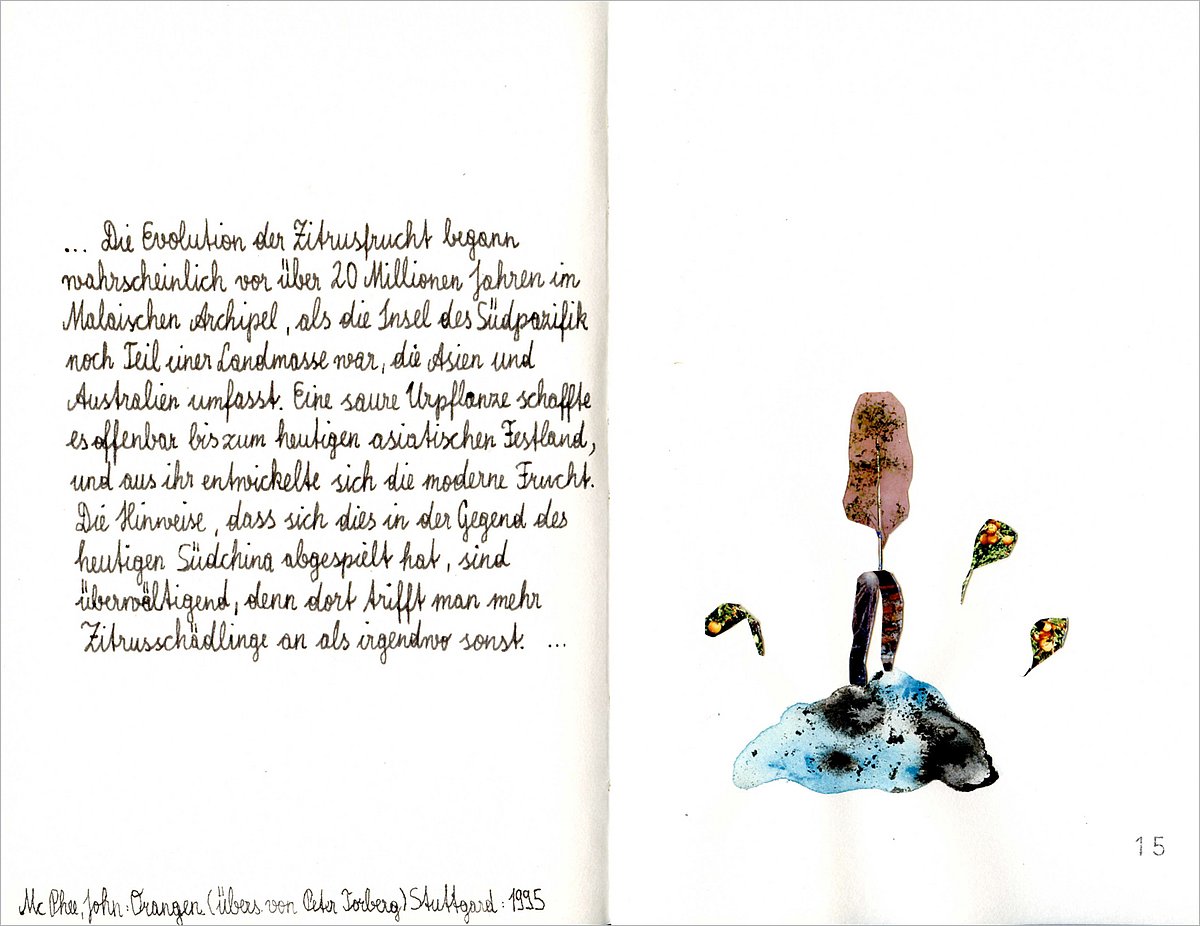 ... Die Evolution der Zitrusfrucht begann
wahrscheinlich vor über 20 Millionen Jahren im
Malaischen Archipel, als die Insel des Südpazifik
noch Teil einer Landmasse war, die Asien und
Australien umfasst. Eine saure Urpflanze schaffte
es offenbar bis zum heutigen asiatischen Festland,
und aus ihr entwickelte sich die moderne Frucht.
Die Hinweise, dass sich dies in der Gegend des
heutigen Südchina abgespielt hat, sind
überwältigend, denn dort trifft man mehr
Zitrusschädlinge an als irgendwo sonst. ...
Mc Phee, John: Orangen. (Übers. von Peter Torberg) Stuttgard: 1995
15